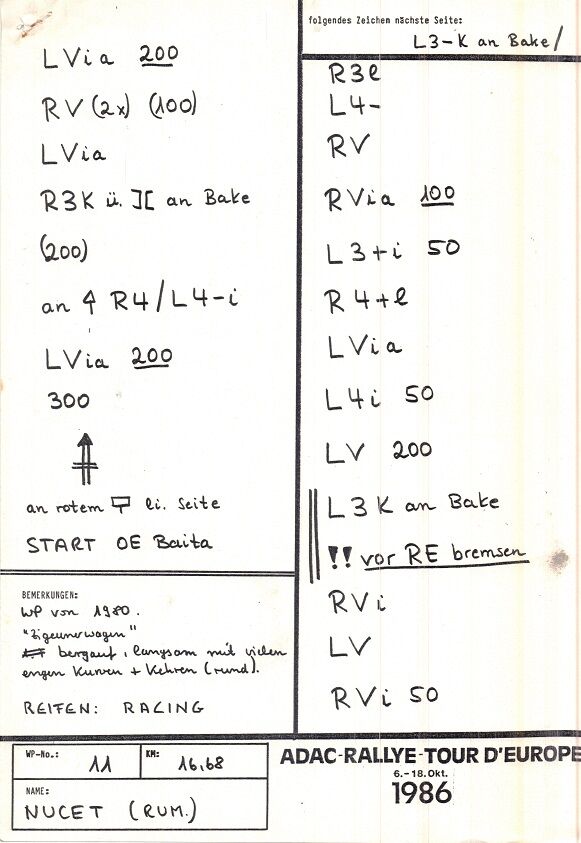 LVia 200
RV (2x) (100)
LVia
R3K ü. ][ an Bake
(200)
an R4/L4-i
LVia 200
300
an rotem li. Seite
START OE Baita
BEMERKUNGEN:
WP von 1980.
"Zigeunerwagen"
bergauf, langsam mit vielen
engen Kurven + Kehren (rund).
REIFEN: RACING
folgendes Zeichen nächste Seite:
L3-K an Bake/
R3l
L4-
RV
RVia 100
L3+i 50
R4+l
LVia
L4i 50
LV 200
L3K an Bake
!! vor RE bremsen
RVi
LV
RVi 50
WP-No.: 11 KM: 16,68
NAME:
NUCET (RUM.)
ADAC-RALLYE-TOUR D'EUROPE
6.-18.Okt.
1986